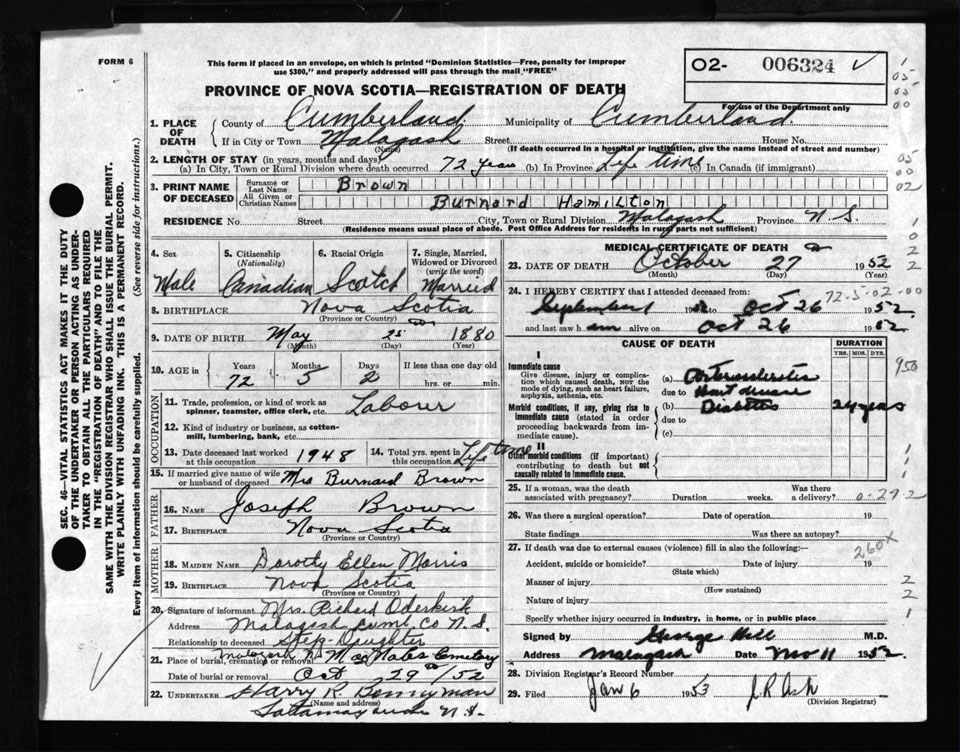 FORM 6
This form if placed in an envelope, on which is printed "Dominion Statistics—Free, penalty for improper
use $300," and properly addressed will pass through the mail "FREE"
O2- 006324
For use of the Department only
PROVINCE OF NOVA SCOTIA—REGISTRATION OF DEATH
1. PLACE OF DEATH { County of Cumberland Municipality of Cumberland
If in City or Town Malagash Street House No.
(Name) (If death occurred in a hospital or institution, give the name instead of street and number)
2. LENGTH OF STAY (in years, months and days)
(a) In City, Town or Rural Division where death occurred 72 years (b) In Province Life time (c) In Canada (if immigrant)
3. PRINT NAME OF DECEASED { Surname or Last Name Brown
All Given or Christian Names Burnard Hamilton
RESIDENCE No. Street City, Town or Rural Division Malagash Province N.S.
(Residence means usual place of abode. Post Office Address for residents in rural parts not sufficient)
4. Sex 5. Citizenship (Nationality) 6. Racial Origin 7. Single, Married, Widowed or Divorced (write the word)
Male Canadian Scotch Married
8. BIRTHPLACE Nova Scotia
(Province or Country)
9. DATE OF BIRTH May 25 1880
(Month) (Day) (Year)
10. AGE in { Years Months Days If less than one day old
72 5 2 hrs. or min.
OCCUPATION
11. Trade, profession, or kind of work as spinner, teamster, office clerk, etc. Laborer
12. Kind of industry or business, as cotton-mill, lumbering, bank, etc.
13. Date deceased last worked at this occupation 1948 14. Total yrs. spent in this occupation Life time
15. If married give name of wife or husband of deceased Mrs Burnard Brown
FATHER
16. NAME Joseph Brown
17. BIRTHPLACE Nova Scotia
(Province or Country)
MOTHER
18. MAIDEN NAME Dorothy Ellen Morris
19. BIRTHPLACE Nova Scotia
(Province or Country)
20. Signature of informant Mrs. Richard Oderkirk
Address Malagash Cumb. Co N.S.
Relationship to deceased Step-Daughter
21. Place of burial, cremation or removal Malagash N.S. MacNabs Cemetery
Date of burial, cremation or removal Oct 29/52
22. UNDERTAKER Harry R. Bonnyman
(Name and address)
Tatamagouche N.S.
MEDICAL CERTIFICATE OF DEATH
23. DATE OF DEATH October 27 1952
(Month) (Day) (Year)
24. I HEREBY CERTIFY that I attended deceased from:
72-5-02-00
September 1952 to Oct 26 1952
and last saw him alive on Oct 26 1952
CAUSE OF DEATH DURATION
YRS. MOS. DYS.
I
Immediate cause
Give disease, injury or complication which caused death, NOT the mode of dying, such as heart failure, asphyxia, asthenia, etc.
(a) Arteriosclerotic
due to Heart disease
Morbid conditions, if any, giving rise to immediate cause (stated in order proceeding backwards from immediate cause).
(b) Diabetes 24 years
due to
(c)
II
Other morbid conditions (if important) contributing to death but not causally related to immediate cause.
25. If a woman, was the death associated with pregnancy? Duration weeks. Was there a delivery?
0-27-2
26. Was there a surgical operation? Date of operation 19
State findings Was there an autopsy?
27. If death was due to external causes (violence) fill in also the following:— 260x
Accident, suicide or homicide? Date of injury 19
(State which)
Manner of injury
(How sustained)
Nature of injury
Specify whether injury occurred in industry, in home, or in public place
Signed by George Hill M.D.
Address Malagash Date Nov 11 1952
28. Division Registrar's Record Number
29. Filed Jan 6 1953 J.R. Ash
(Division Registrar)
SEC. 46—VITAL STATISTICS ACT MAKES IT THE DUTY
OF THE UNDERTAKER OR PERSON ACTING AS UNDER-
TAKER TO OBTAIN ALL THE PARTICULARS REQUIRED
IN THE "REGISTRATION OF DEATH" AND TO FILE THE
SAME WITH THE DIVISION REGISTRAR WHO SHALL ISSUE THE BURIAL PERMIT.
WRITE PLAINLY WITH UNFADING INK. THIS IS A PERMANENT RECORD.
Every item of information should be carefully supplied. (See reverse side for instructions.)
1
05
05
00
05
00
02
1
0
2
2
950
1
1
1
2
2
1